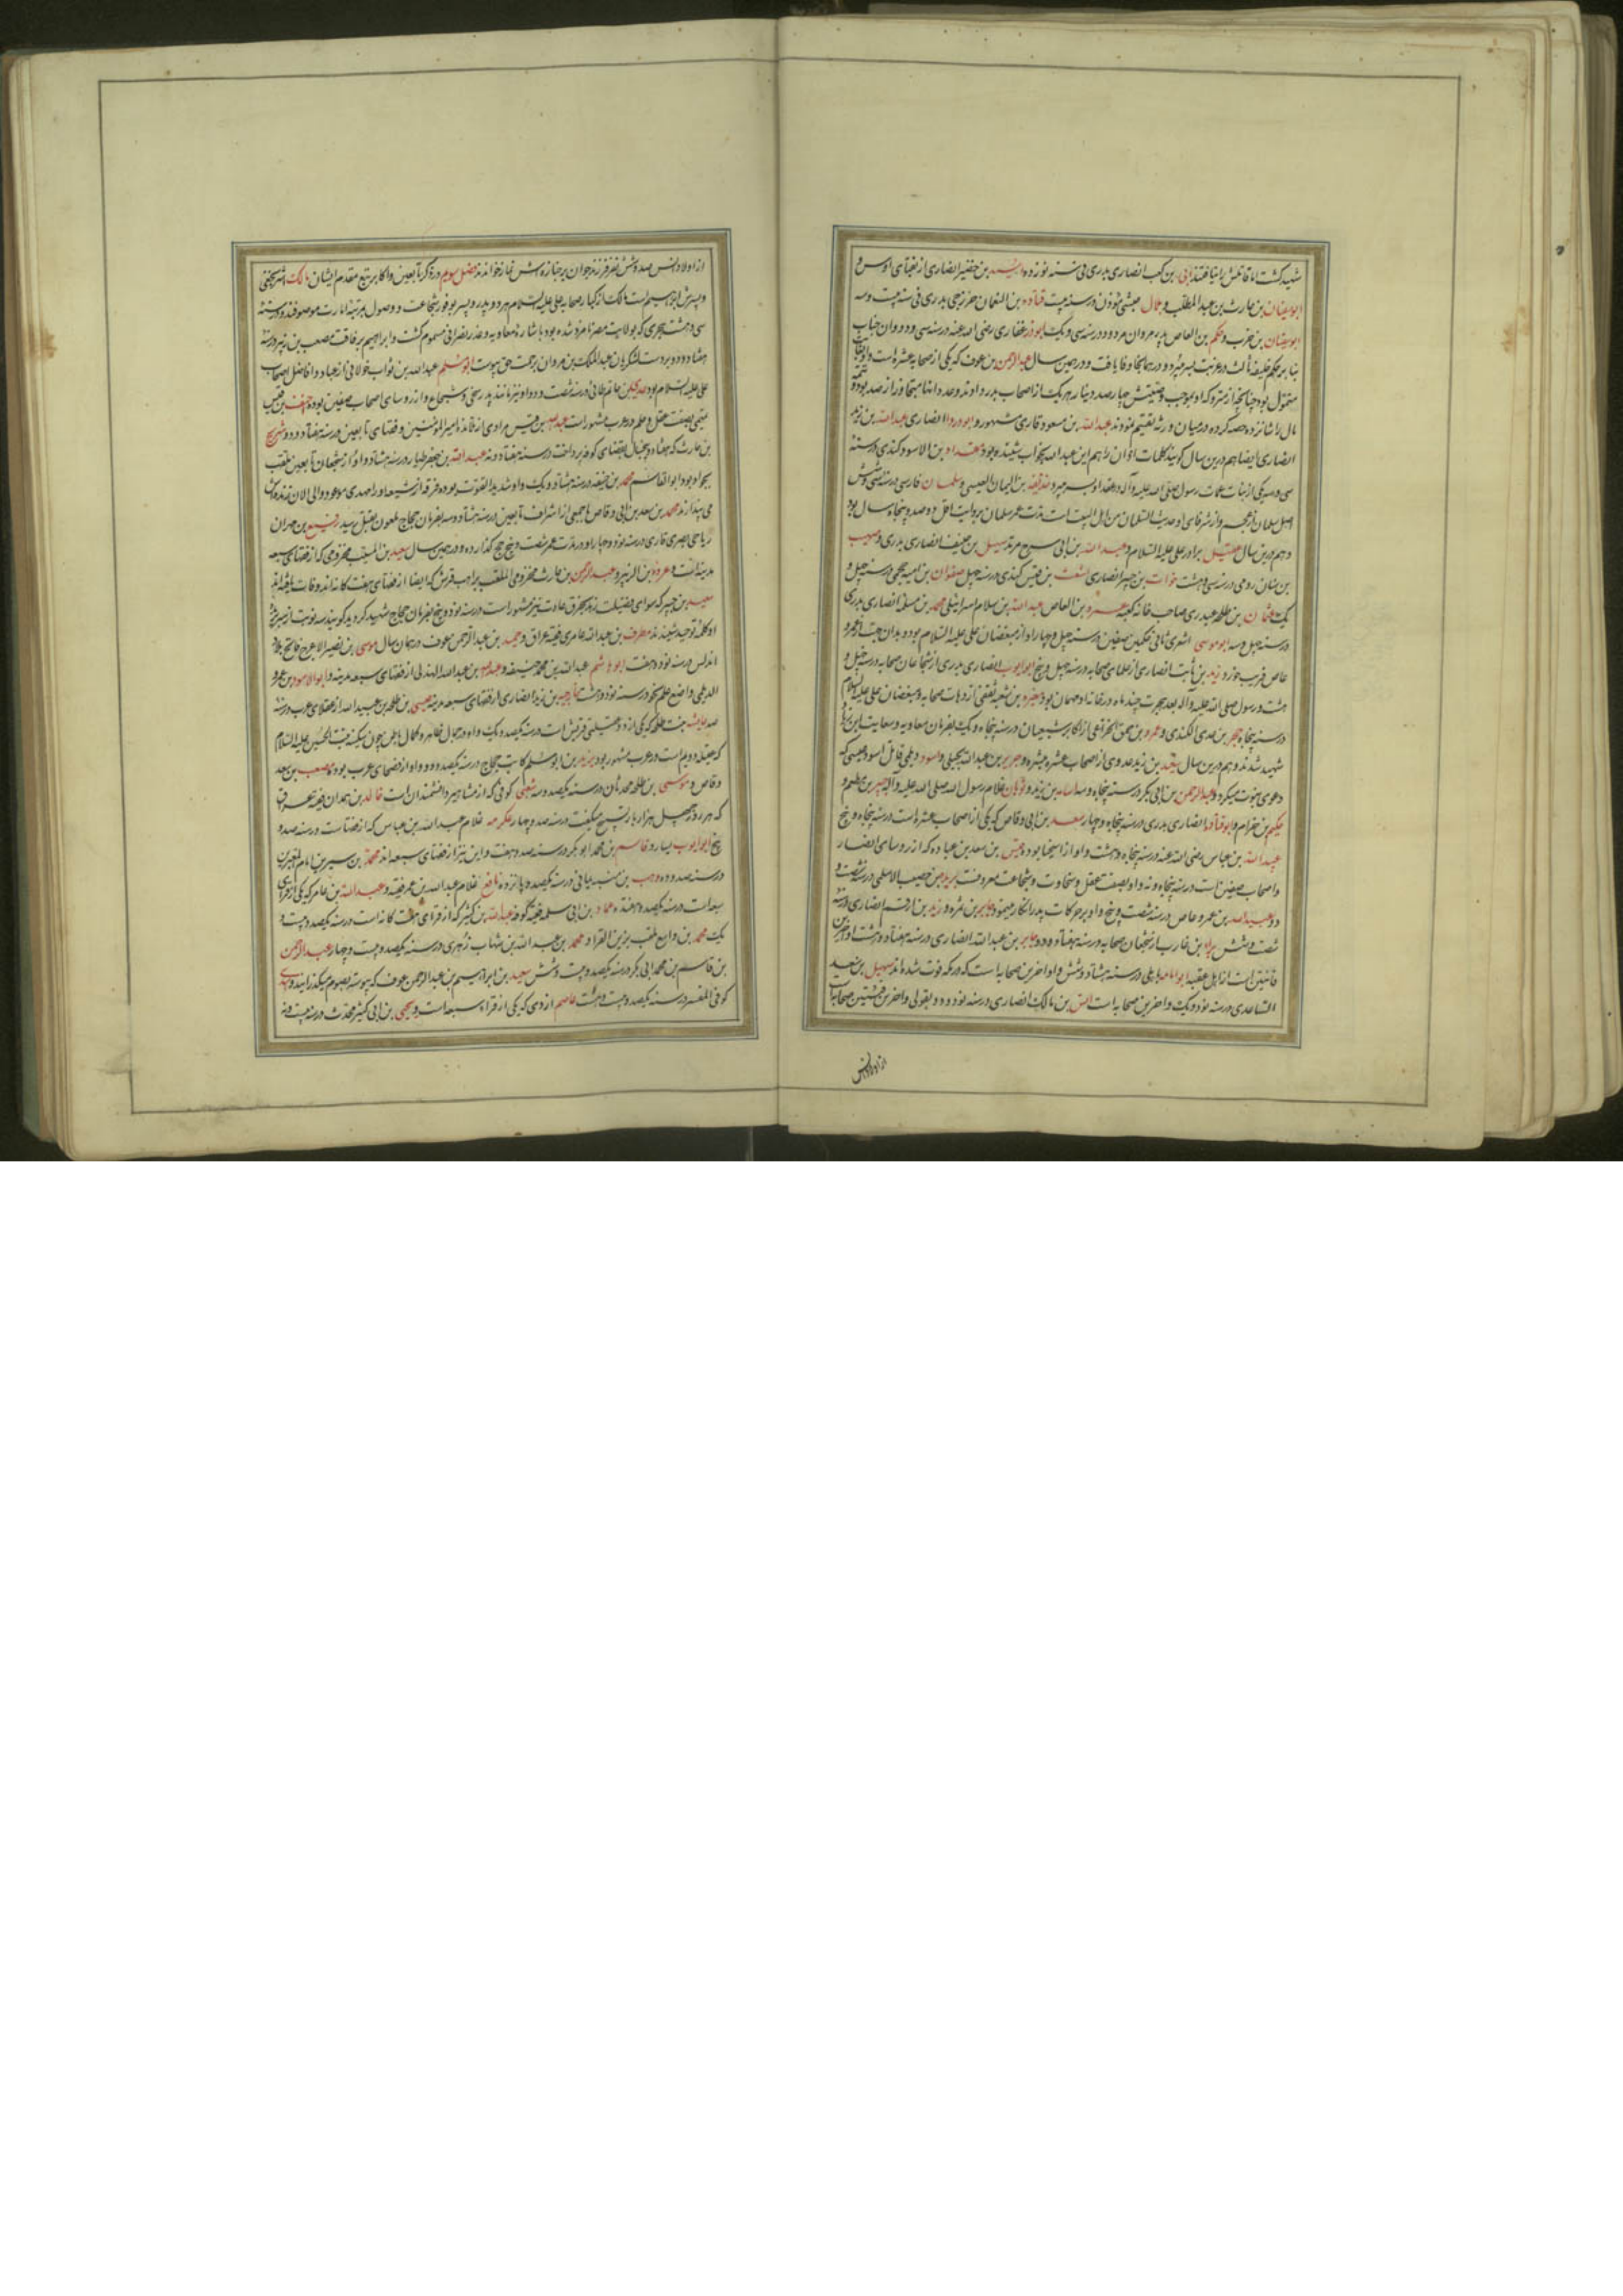 شهید گشت اما قاتلش را نیافتند ابی بن کعب انصاری بدری فی سنه نوزده اسید بن حضیر انصاری از نقبای اوس و
ابوسفیان بن حارث بن عبدالمطلب و بلال حبشی مؤذن در سنه بیست قتاده بن النعمان خزرجی بدری فی سنه بیست و سه
ابوسفیان بن حرب و حکم بن العاص پدر مروان مردود در سنه سی و یک ابوذر غفاری رضی الله عنه در سنه سی و دو و ان جناب
بنا بر حکم خلیفه ثالث در غربت بسر میبرد و در همانجا وفا یافت و در همین سال عبدالرحمن بن عوف که یکی از صحابه عشره است و او بغایت
متمول بود چنانچه از متروکه او بموجب وصیتش چهار صد دینار بهر یک از اصحاب بدر دادند و عدد انها متجاوز از صد بوده و تتمه
مال را شانزده حصه کرده در میان ورثه تقسیم نمودند عبدالله بن مسعود قاری مشهور و ابودردا انصاری عبدالله بن زید
انصاری ایضا هم درین سال گویند کلمات اذان را هم این عبدالله بخواب شنیده بود مقداد بن الاسود کندی در سنه
سی و سه یکی از بنات عمات رسول صلی الله علیه و آله در عقد او بسر میبرد حذیفه بن الیمان العبسی و سلمان فارسی در سنه سی و شش
اصل سلمان از عجم و از شرفای او حدیث السلمان من اهل البیت است مدت عمر سلمان بروایت اقل دو صد و پنجاه سال بود
و هم درین سال عقیل برادر علی علیه السلام و عبدالله بن ابی سرح مرتد سهل بن حنیف انصاری بدری و صهیب
بن سنان رومی در سنه سی و هشت خوات بن جبیر انصاری اشعث بن قیس کندی در سنه چهل صفوان بن امیه جمحی در سنه چهل و
یک عثمان بن طلحه عبدری صاحب خانه کعبه عمرو بن العاص عبدالله بن سلام اسرائیلی محمد بن مسلمه انصاری بدری
در سنه چهل و سه ابوموسی اشعری ثانی حکمین صفین در سنه چهل و چهار او از مبغضان علی علیه السلام بود و بدان جهت از عمرو
عاص فریب خورد زید بن ثابت انصاری از علمای صحابه در سنه چهل و پنج ابوایوب انصاری بدری از شجاعان صحابه در سنه چهل و
هشت و رسول صلی الله علیه و آله بعد هجرت چند ماه در خانه او مهمان بود مغیره بن شعبه ثقفی از دهات صحابه و مبغضان علی علیه السلام
در سنه پنجاه حجر بن عدی الکندی و عمرو بن حمق الخزاعی از اکابر شیعیان در سنه پنجاه و یک بفرمان معاویه و سعایت ابن زیاد
شهید شدند و هم درین سال سعید بن زید عدوی از اصحاب عشره مبشره و جریر بن عبدالله بجیلی و فیروز دیلمی قاتل اسود عنسی که
دعوی نبوت میکرد و عبدالرحمن بن ابی بکر در سنه پنجاه و سه اسامه بن زید و ثوبان غلام رسول الله صلی الله علیه و آله جبیر بن مطعم و
حکیم بن خزام و ابوقتاده انصاری بدری در سنه پنجاه و چهار سعد بن ابی وقاص که یکی از اصحاب عشره است در سنه پنجاه و پنج
عبیدالله بن عباس رضی الله عنه در سنه پنجاه و هشت و او از اسخیا بوده قیس بن سعد بن عباده که از روسای انصار
و اصحاب صفین است در سنه پنجاه و نه و او بصفت عقل و سخاوت و شجاعت معروفست بریده بن حصیب الاسلمی در سنه شصت و
دو عبدالله بن عمرو عاص در سنه شصت و پنج و او بر حرکات پدر انکار مینمود جابر بن سمره و زید بن ارقم انصاری در سنه
شصت و شش براء بن عازب از شجعان صحابه در سنه هفتاد و دو جابر بن عبدالله انصاری در سنه هفتاد و هشت او اخرین
است از اهل عقبه ابوامامه باهلی در سنه هشتاد و شش و او اخرین صحابه است که در مکه فوت شده اند سهل بن سعد
الساعدی در سنه نود و یک و اخرین صحابه است انس بن مالک انصاری در سنه نود و دو و بقولی و اخرین صحابه است
از اولاد انس
از اولاد انس صد و شش نفر فرزند جوان بر جنازه اش نماز خواندند فصل سوم در ذکر تابعین و اکابر تبع مقدم ایشان مالک اشتر نخعی
و پسرش ابراهیم است مالک از کبار صحابه علی علیه السلام هر دو پدر و پسر بوفور شجاعت و وصول بمرتبه امارت موصوفند و در سنه
سی و هشت هجری که بولایت مصر نامزد شده بود باشاره معاویه و غدر نصرانی مسموم گشت و ابراهیم برفاقت مصعب بن زبیر در سنه
هفتاد و دو بر دست لشکریان عبدالملک بن مروان برحمت حق پیوست ابومسلم عبدالله بن ثواب خولانی از عباد و افاضل اصحاب
علی علیه السلام بود عدی بن حاتم طائی در سنه شصت و دو او نیز مانند پدر سخی و شجاع و از روسای اصحاب صفین بوده احنف بن قیس
تمیمی بصفت عقل و حلم در عرب مشهور است عبیده بن قیس مرادی از تلامذه امیرالمؤمنین و فقهای تابعین در سنه هفتاد و دو شریح
بن حارث که هفتاد و پنج سال بقضای کوفه پرداخت در سنه هفتاد و نه عبدالله بن جعفر طیار در سنه هشتاد و او از شجعان تابعین ملقب
بجواد بود ابوالقاسم محمد بن حنفیه در سنه هشتاد و یک و او شدید القوت بوده فرقه از شیعه او را مهدی موعود و الی الان زنده اش
می پندارند محمد بن سعد بن ابی وقاص با جمعی از اشراف تابعین در سنه هشتاد و سه بفرمان حجاج ملعون بقتل رسید رفیع بن مهران
ریاحی بصری قاری در سنه نود و چهار او در مدت عمر شصت و پنج حج گذارده و در همین سال سعید بن المسیب مخزومی که از فقهای سبعه
مدینه است و عروه بن الزبیر و عبدالرحمن بن حارث مخزومی الملقب براهب قریش که ایضا از فقهای هفت گانه اند وفات یافته اند
سعید بن جبیر که سوای فضیلت زهد بخرق عادت نیز مشهور است در سنه نود و پنج بفرمان حجاج شهید گردید گویند سه نوبت از سر بریده
او کلمه توحید شنیدند مطرف بن عبدالله عامری فقیه عراق و حمید بن عبدالرحمن عوف در همان سال موسی بن نصیر الاعرج فاتح بلاد
اندلس در سنه نود و هفت ابوهاشم عبدالله بن محمد حنفیه و عبیدالله بن عبدالله الهذلی از فقهای سبعه مدینه و ابوالاسود بن عمرو
الدیلمی واضع علم نحو در سنه نود و هشت خارجه بن زید انصاری از فقهای سبعه مدینه عیسی بن طلحه بن عبیدالله از عقلای عرب در سنه
صد عایشه بنت طلحه که یکی از دو عقیله قریش است در سنه یکصد و یک و او در جمال ظاهر و کمال باطن چون سکینه بنت الحسین علیه السلام
که عقیله دویم است در عرب مشهور بود یزید بن ابومسلم کاتب حجاج در سنه یکصد و دو و او از فصحای عرب بوده مصعب بن سعد
وقاص و موسی بن طلحه محدثان در سنه یکصد و سه شعبی کوفی که از مشاهیر دانشمندان است خالد بن معدان فقیه
که هر روز چهل هزار بار تسبیح میگفت در سنه صد و چهار عکرمه غلام عبدالله بن عباس که از ثقات است در سنه صد و
پنج ابوایوب یسار و قاسم بن محمد ابوبکر در سنه صد و هفت و این نیز از فقهای سبعه اند محمد بن سیرین امام المعبرین
در سنه صد و ده وهب بن منبه یمانی در سنه یکصد و پانزده نافع غلام عبدالله بن عمر فقیه و عبدالله بن عامر که یکی از قرای
سبعه است در سنه یکصد و هفده حماد بن ابی سلمه فقیه کوفه عبدالله بن کثیر که از قرای هفت گانه است در سنه یکصد و بیست و
یک محمد بن واسع ملقب بزین القراء و محمد بن عبدالله بن شهاب زهری در سنه یکصد و بیست و چهار عبدالرحمن
بن قاسم بن محمد ابی بکر در سنه یکصد و بیست و شش سعید بن ابراهیم بن عبدالرحمن عوف که پیوسته بصوم میگذرانید و سدی
کوفی المفسر در سنه یکصد و بیست و هشت عاصم ازدی که یکی از قراء سبعه است و یحیی بن ابی کثیر محدث در سنه بیست و نه